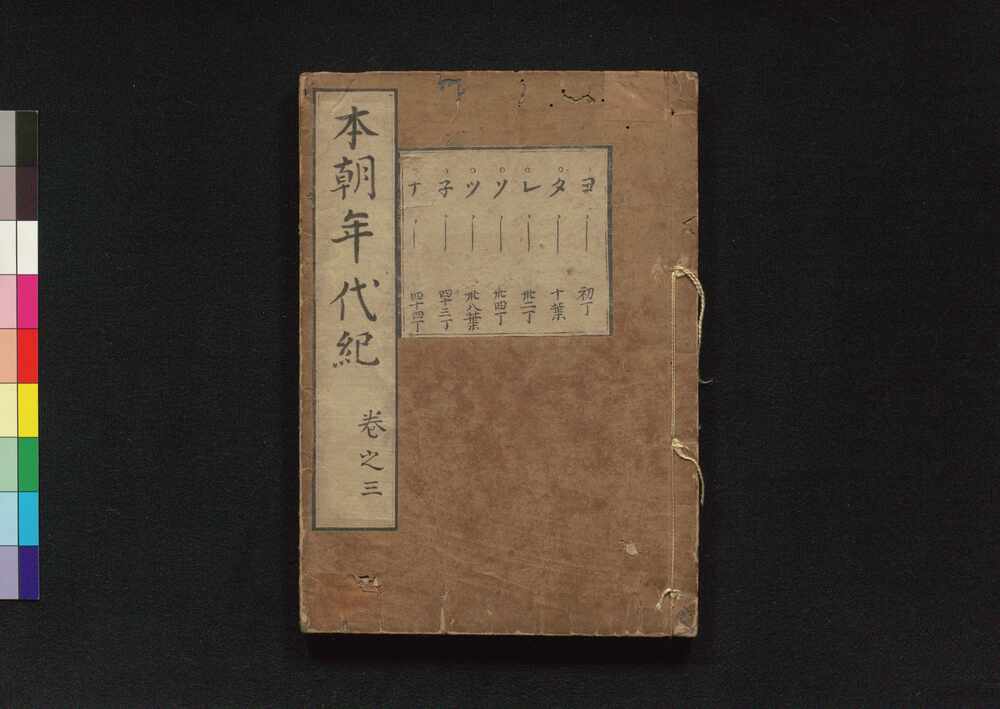 本朝年代紀 卷之三
ヨ 初丁
タ 十葉
レ 卅二丁
ソ 卅四丁
ツ 卅八葉
子 四十三丁
ナ 四十四丁